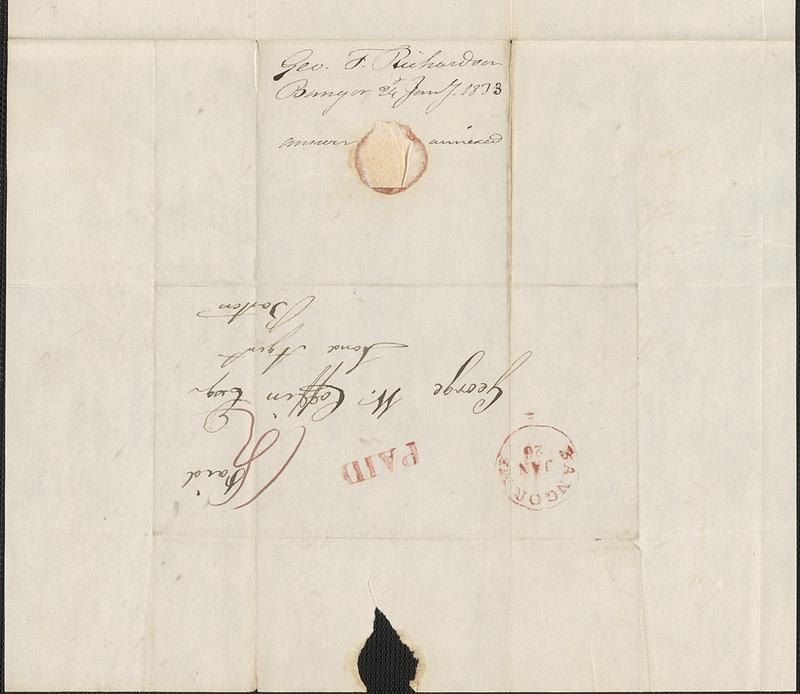 Geo. F. Richardson
Bangor 24 Jany. 1833
answer annexed
BANGOR ME.
JAN
26
PAID
Paid
George W. Coffin Esqr
Land Agent
Boston